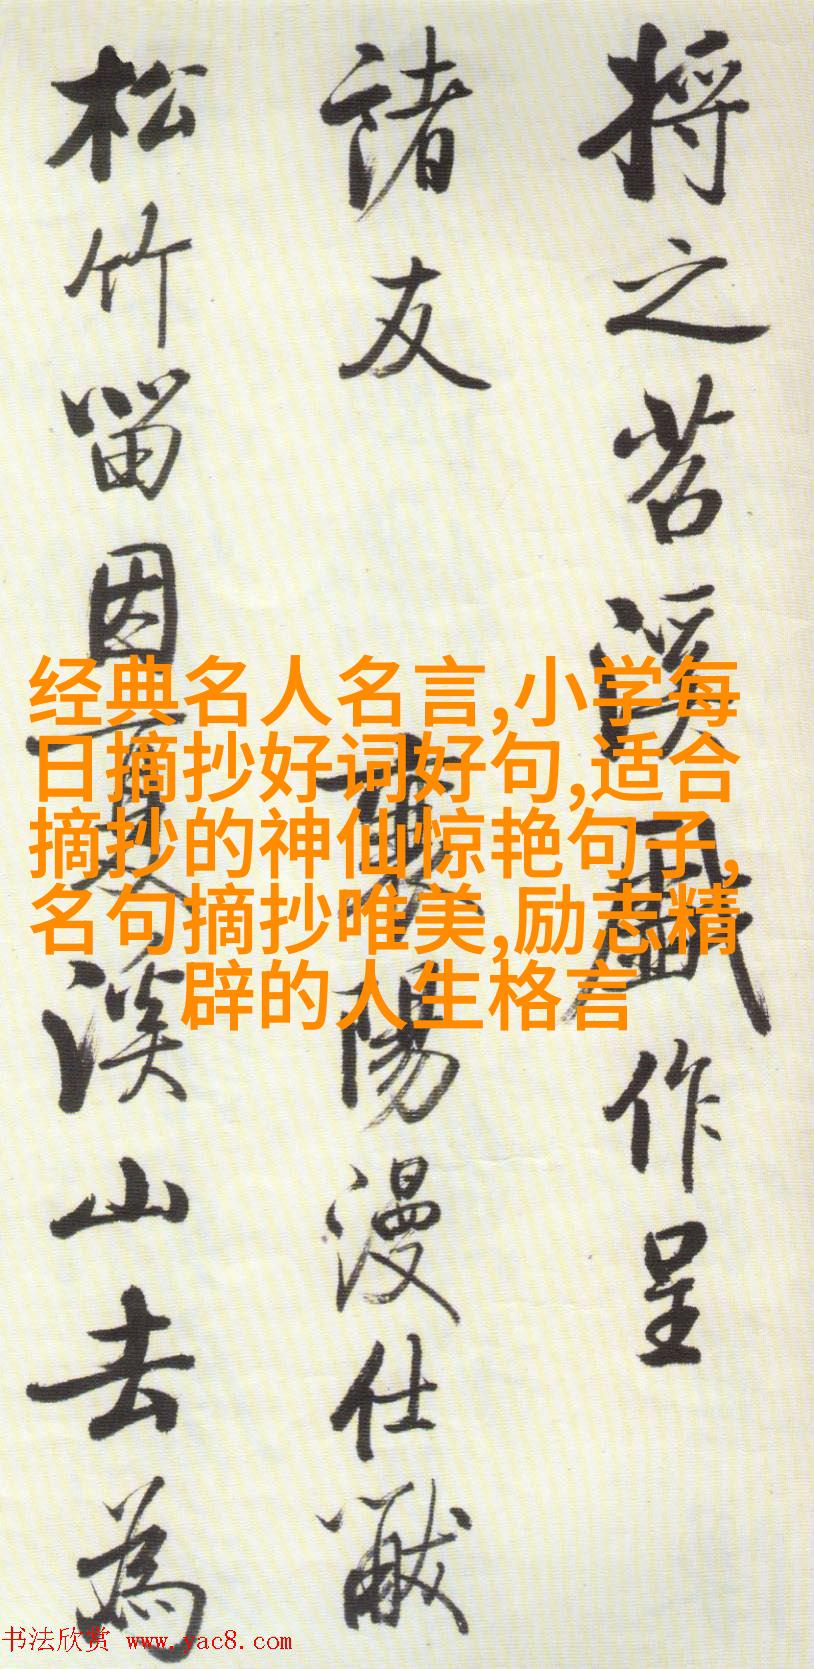 将之苕溪戲作呈
諸友
襄陽漫仕黻
松竹留因夏溪山去為
经典名人名言,小学每
日摘抄好词好句,适合
摘抄的神仙惊艳句子,
名句摘抄唯美,励志精
辟的人生格言
书法欣赏 www.yac8.com